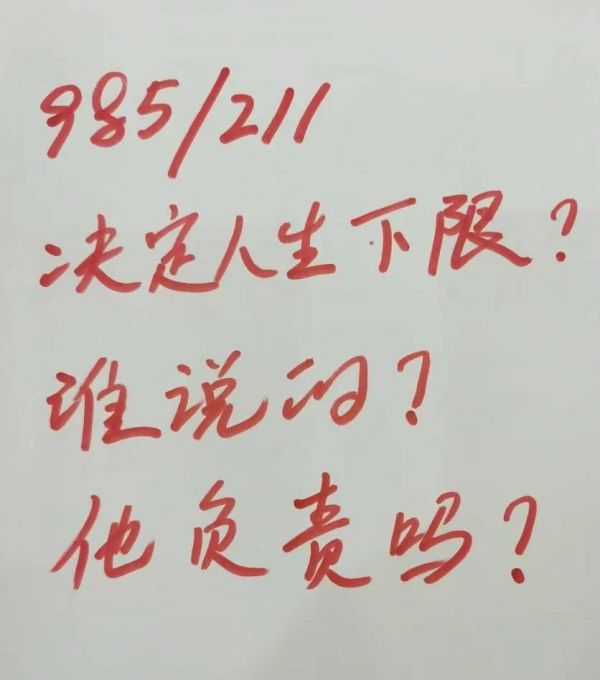 985/211
决定人生下限?
谁说的?
他负责吗?